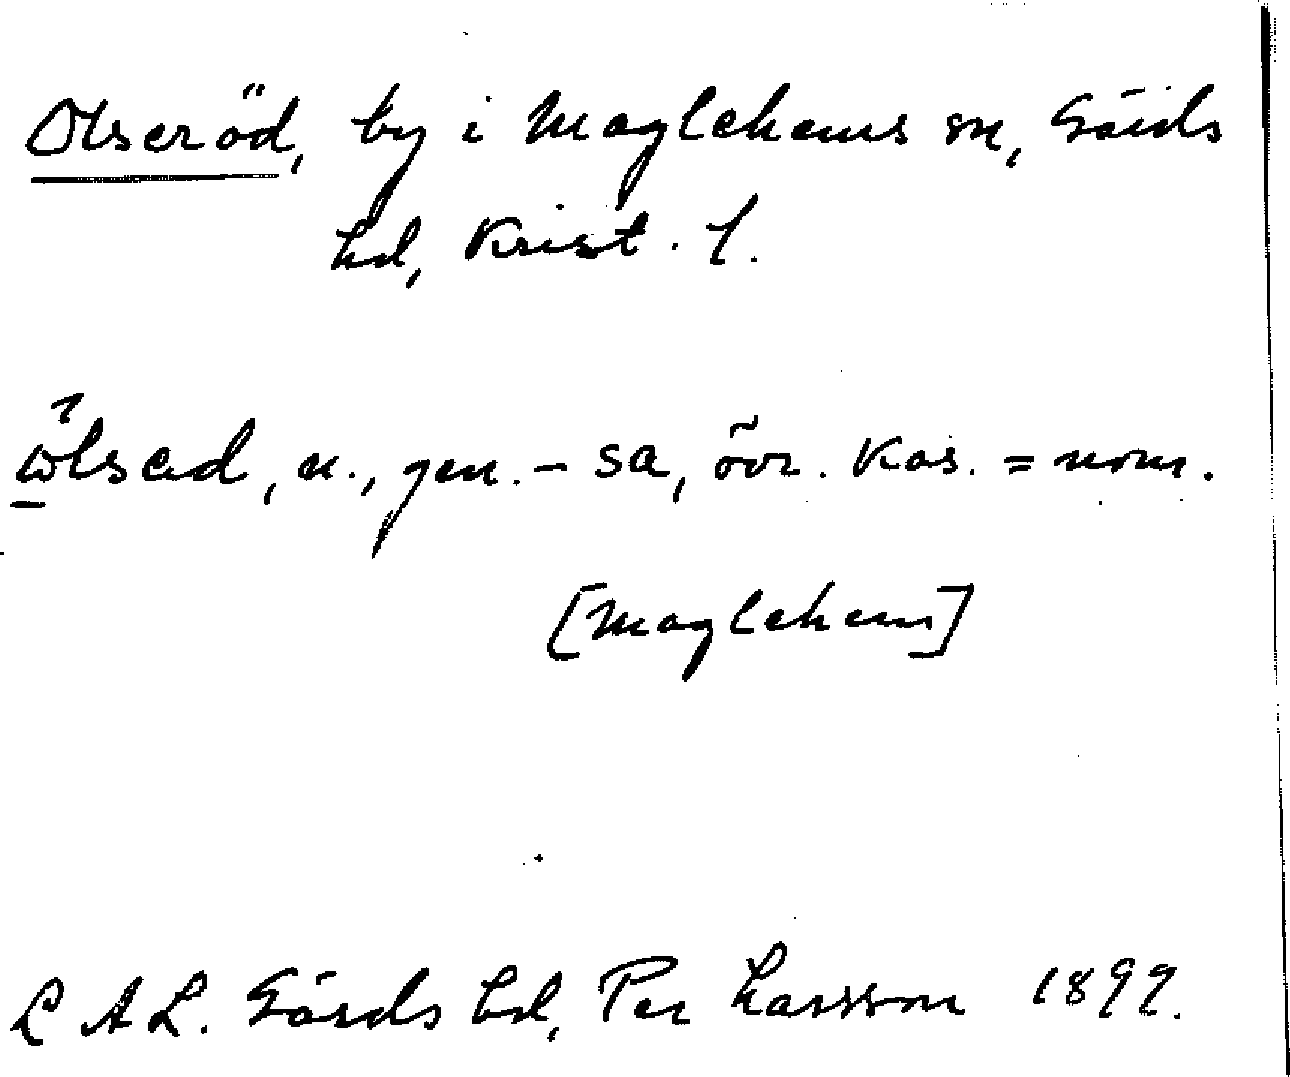 Olseröd, by i Maglehems sn, Gärds
hd, Krist. l.
ωlsad, n., gen. - sa, övr. kas. = nom.
[Maglehem]
L A L. Gärds hd, Per Larsson 1899.